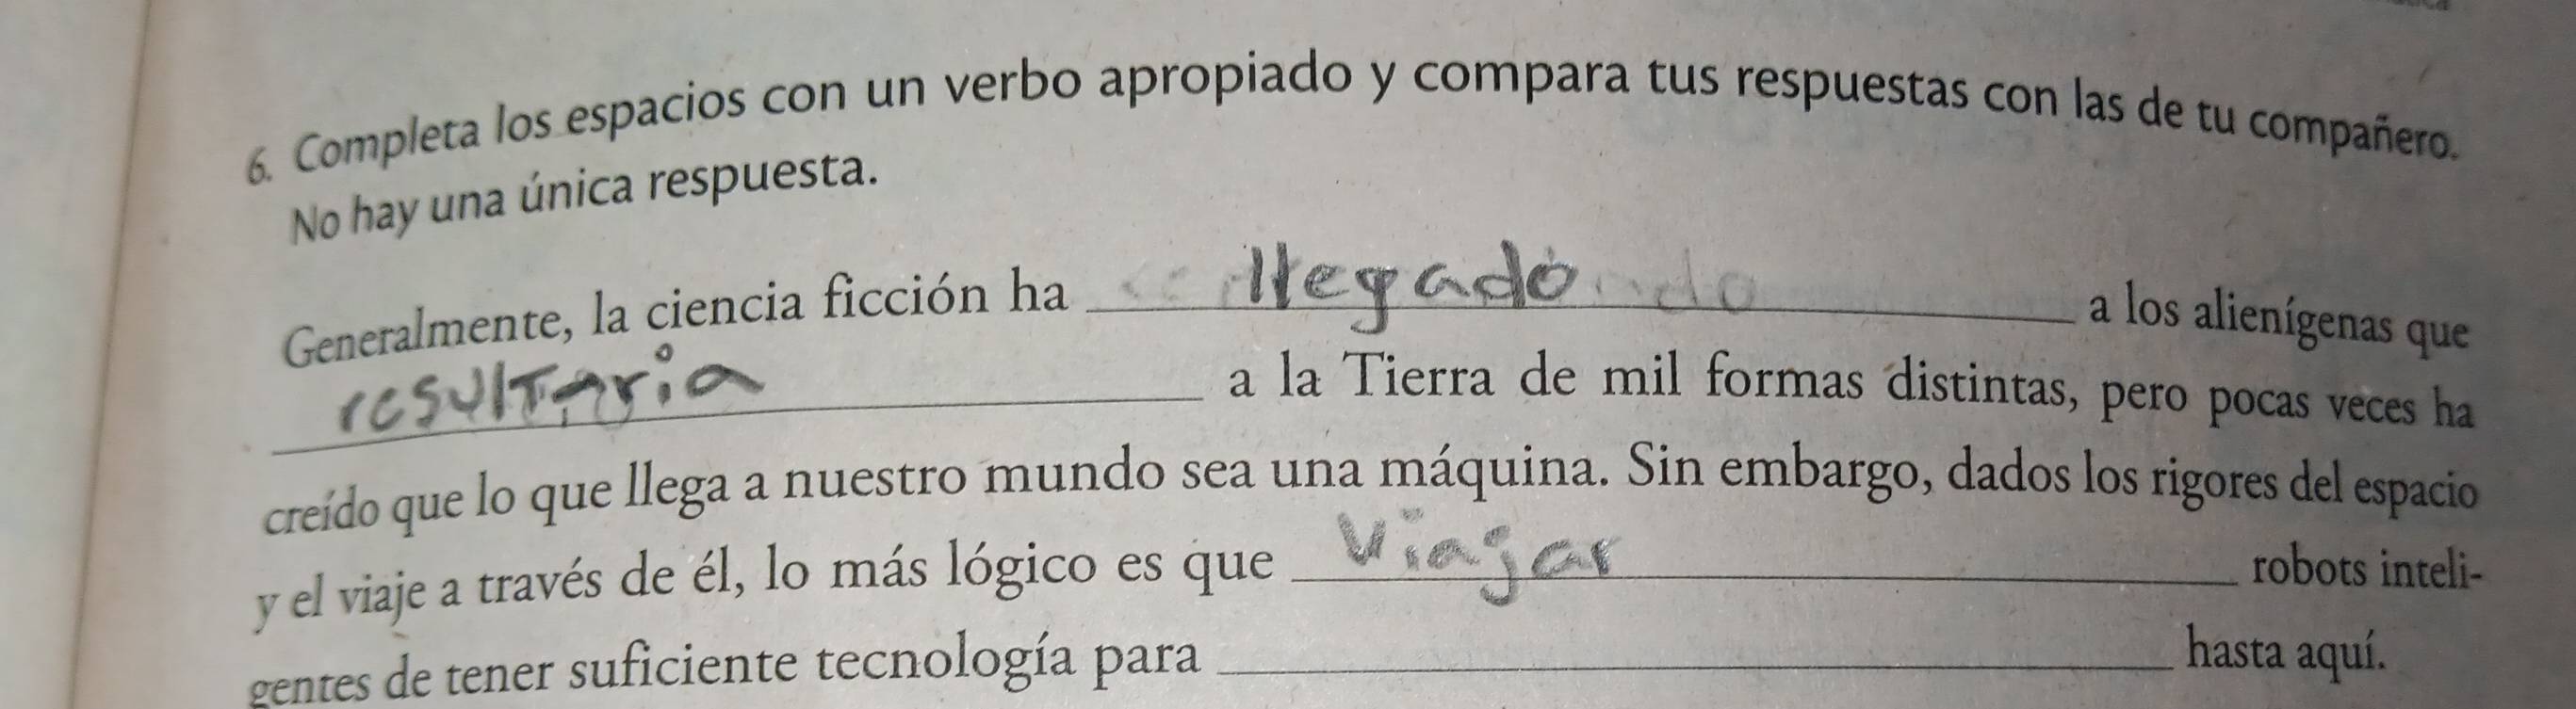 6. Completa los espacios con un verbo apropiado y compara tus respuestas con las de tu compañero.
No hay una única respuesta.
Generalmente, la ciencia ficción ha llegado a los alienígenas que
resultaria a la Tierra de mil formas distintas, pero pocas veces ha
creído que lo que llega a nuestro mundo sea una máquina. Sin embargo, dados los rigores del espacio
y el viaje a través de él, lo más lógico es que viajar robots inteli-
gentes de tener suficiente tecnología para hasta aquí.